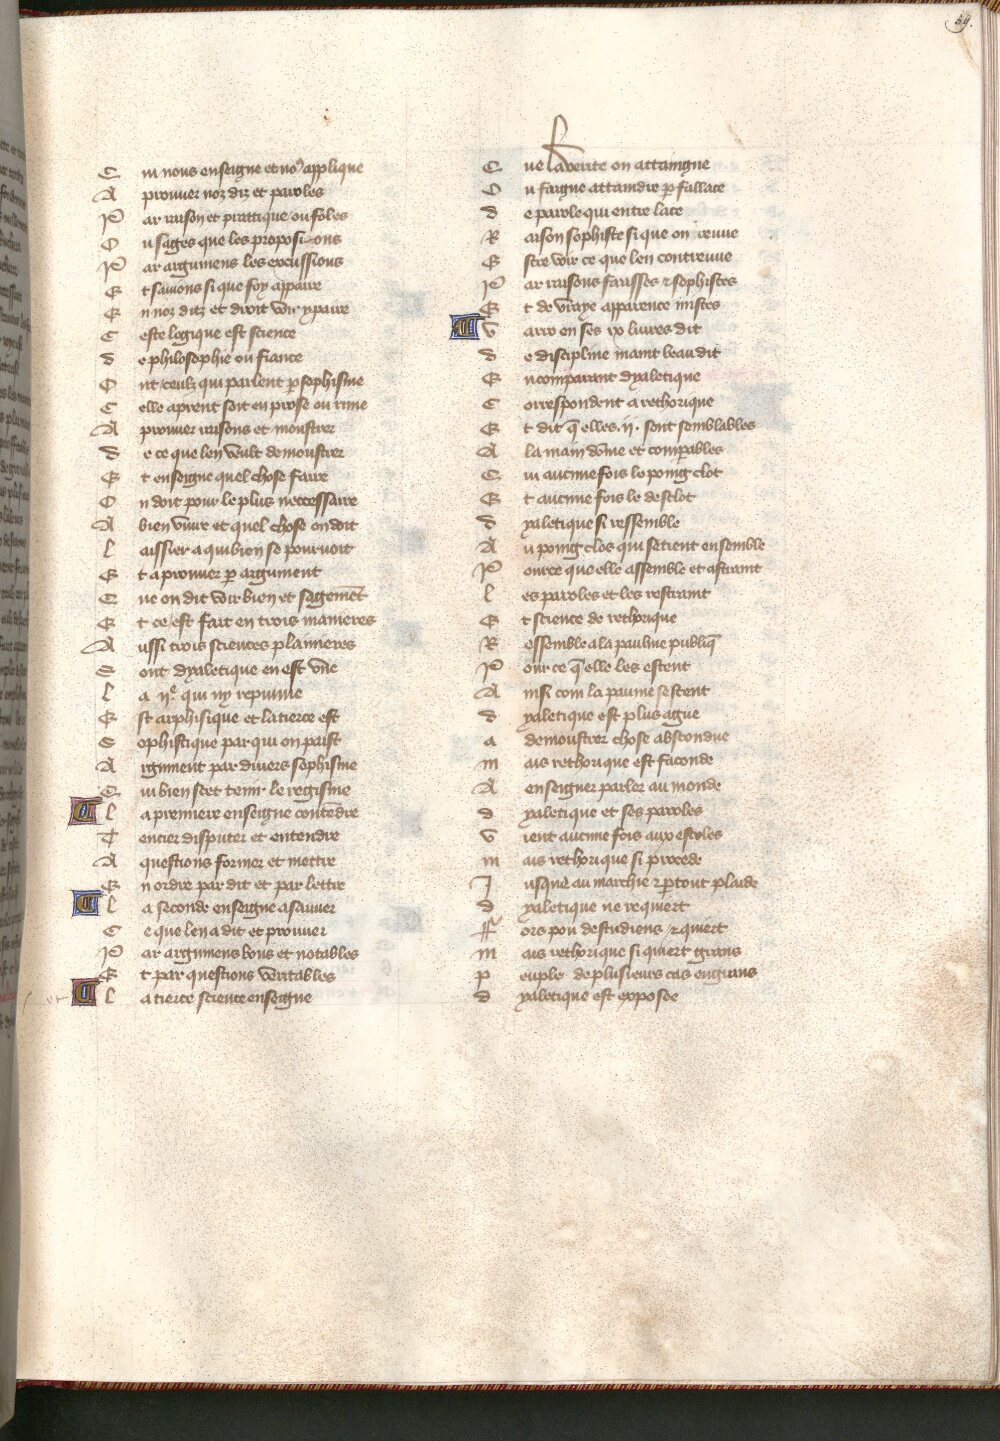 59.
Qui nous enseigne et no9 applique
A prouuer noz diz et paroles
Par raison et prattique ou foles
Ou sages que les proposicions
Par argumens les excussions
Et sauons si que foy appaire
En noz ditz et droit voir ypaire
Ceste logique est science
de philosophie ou fiance
Ont ceulz qui parlent p sophisme
Celle aprent soit en prose ou rime
A prouuer raisons et monstrer
de ce que len vault demonstrer
Et enseigne quel chose faire
On doit pour le plus neccessaire
A bien viure et quel chose on doit
laissier a qui bien se pouruoit
Et a prouuer p argument
Que on dit voir bien et sagemēt
Et ce est fait en trois manieres
Aussi trois sciences plannieres
Sont dyaletique en est vne
la ije qui ny repunie
Est arphisique et la tierce est
Sophistique par qui on paist
Argument par diuers sophisme
Qui bien scet tenir le regisme
la premiere enseigne contendre
Tencier disputer et entendre
A questions former et mettre
En ordre par dit et par lettre
la seconde enseigne a sauuer
Ce que len a dit et prouuer
Par argumens bons et notables
Et par questions veritables
la tierce science enseigne
Que la verite on attaingne
Ou faigne attaindre p fallace
de parole qui entre lace
Raison sophiste si que on treuue
Estre voir ce que len contreuue
Par raisons faulses et sophistes
Et de vraye apparence mistes
Varro en ses ix liures dit
de discipline maint beau dit
En comparant dyaletique
Correspondent a rethorique
Et dit q̄ elles .ij. sont semblables
A la main dōme et comparables
Qui aucune fois le poing clot
Et aucune fois le desclot
dyaletique si ressemble
Au poing clos qui se tient ensemble
Pource que elle assemble et astraint
les paroles et les restraint
Et science de rethorique
Ressemble a la paulme publiq̄
Pour ce q̄ elle les estent
Ainsi com la paume sestent
dyaletique est plus ague
a demonstrer chose abscondue
mais rethorique est faconde
A enseigner parler au monde
dyaletique et ses paroles
vient aucune fois aux escoles
mais rethorique si procede
Jusque au marchie et p tout plaide
dyaletique ne requiert
ffors pou destudiens et quiert
mais rethorique si quiert grans
peuple de plusieurs cas engrans
dyaletique est exposee